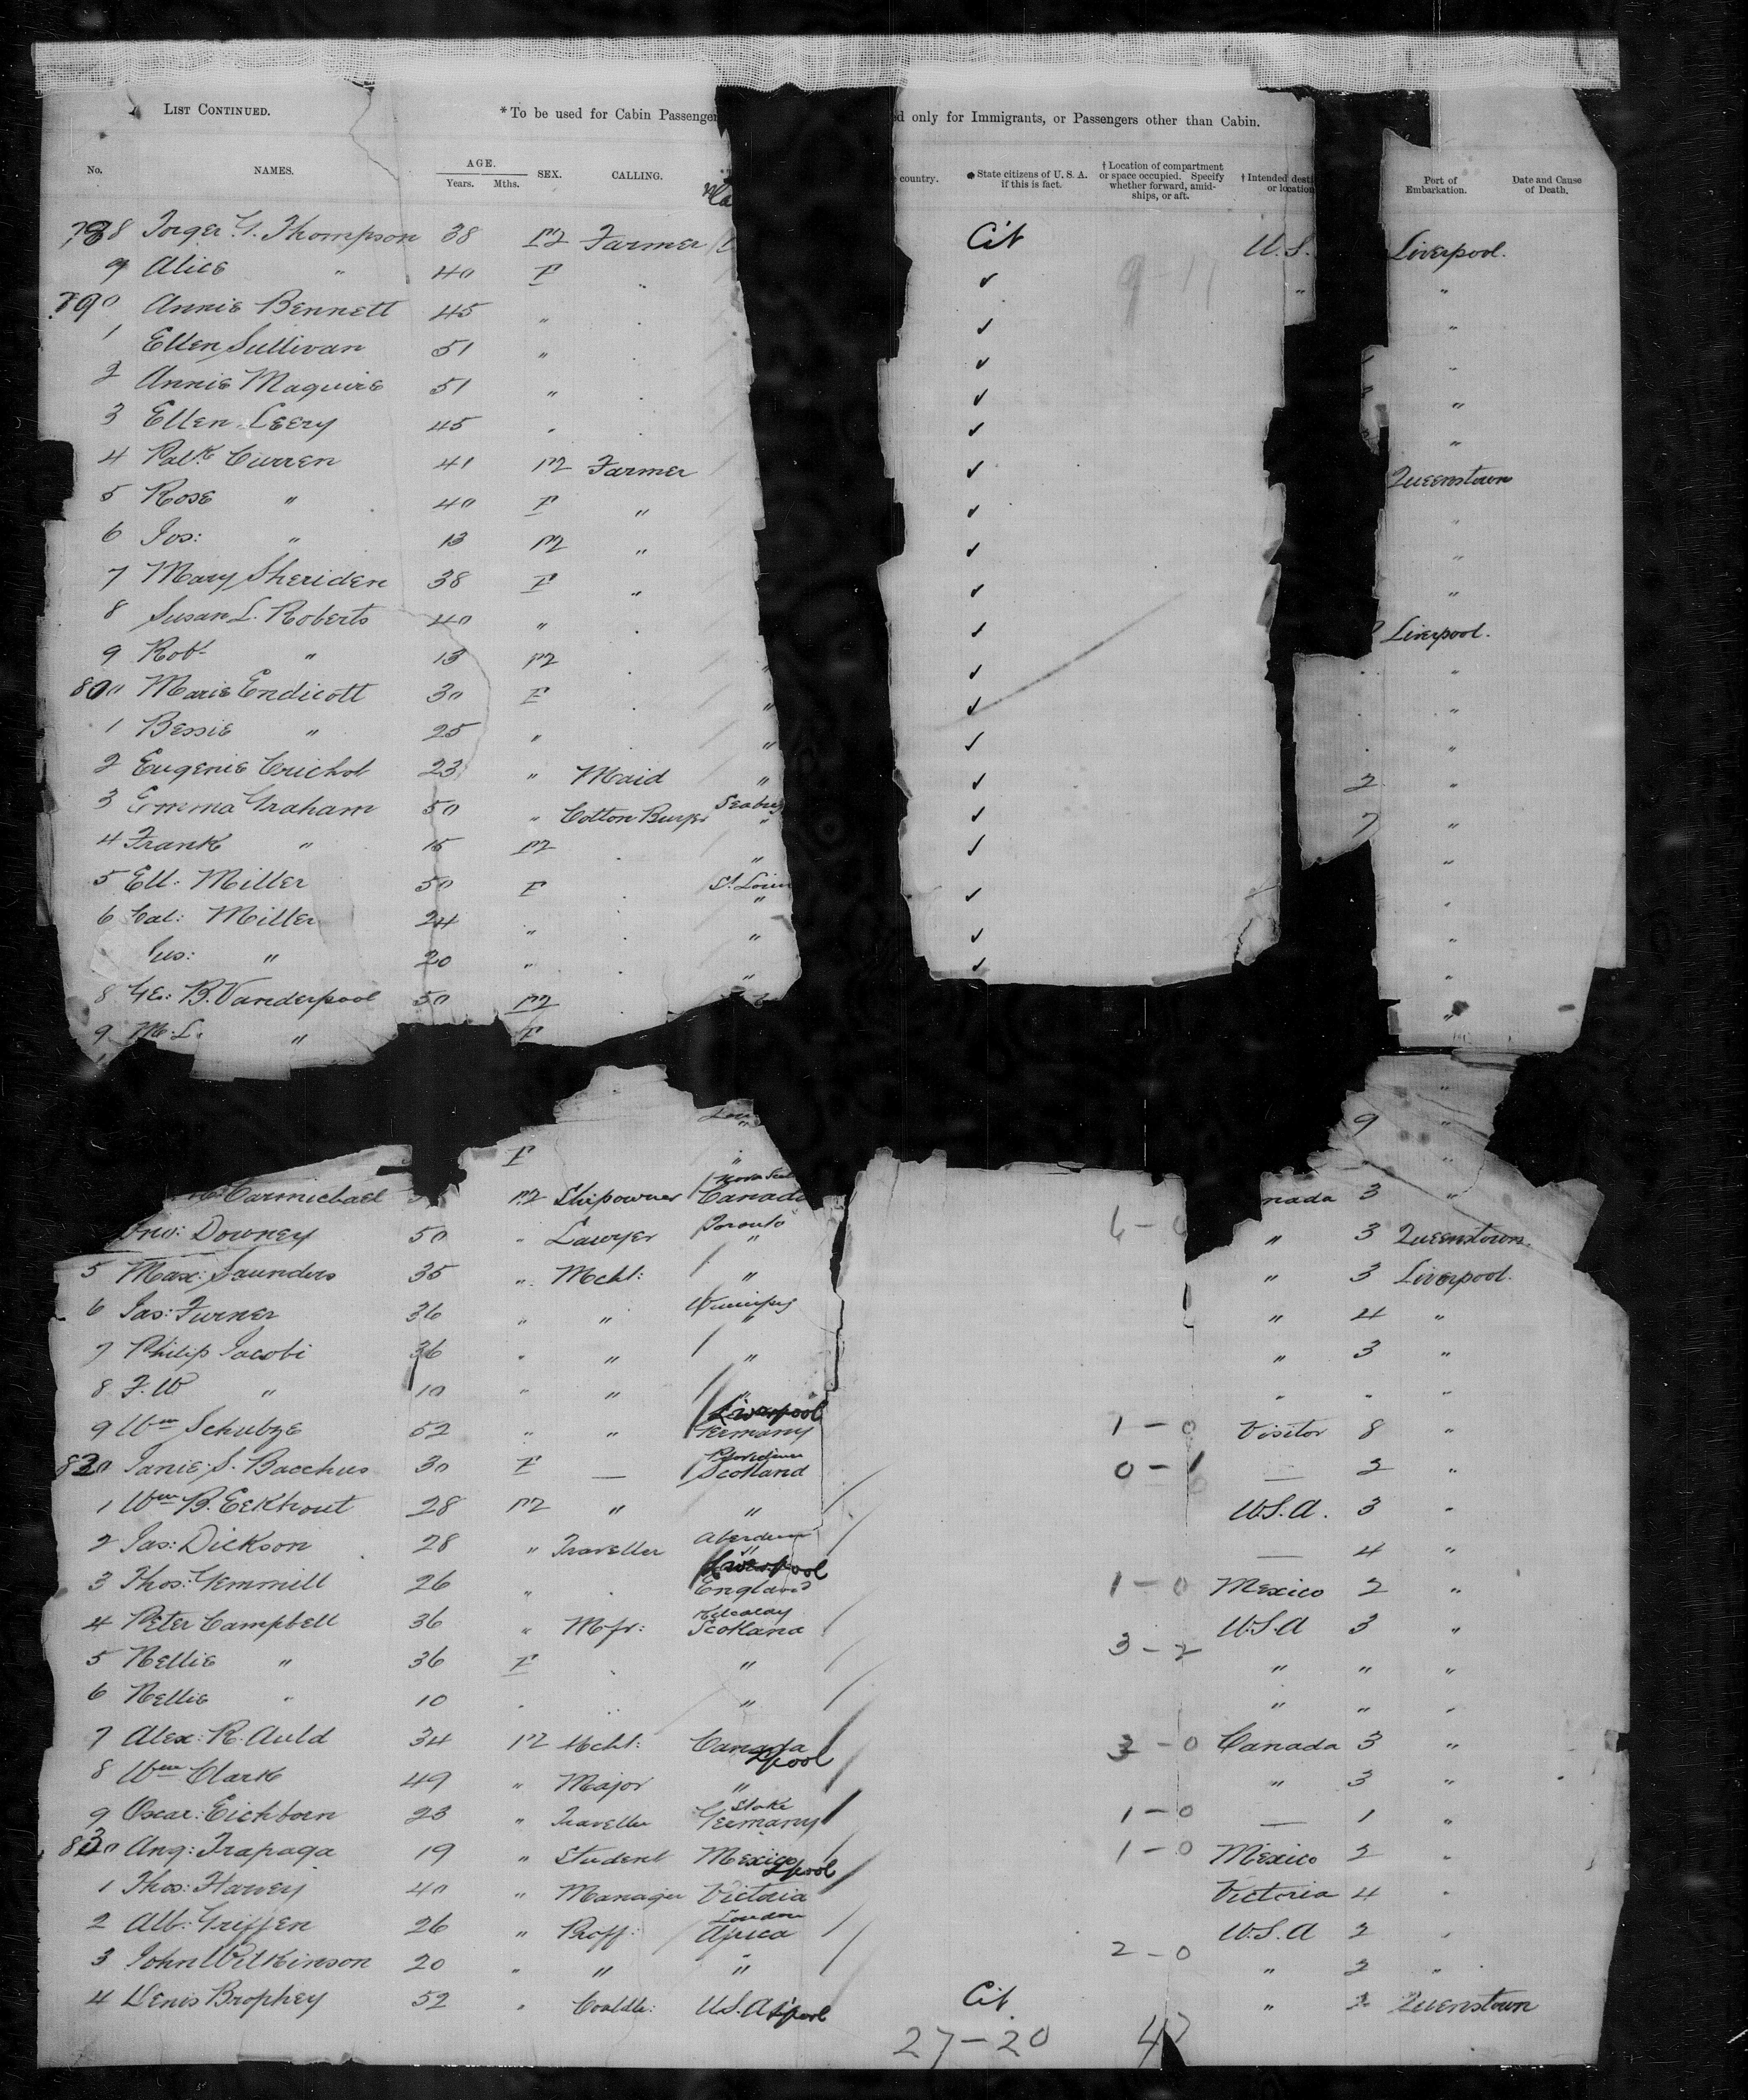 LIST CONTINUED.
*To be used for Cabin Passenger
d only for Immigrants, or Passengers other than Cabin.
No. NAMES. AGE. Years. Mths. SEX. CALLING. country. State citizens of U. S. A. if this is fact. † Location of compartment or space occupied. Specify whether forward, amidships, or aft. † Intended desti or location Port of Embarkation. Date and Cause of Death.
788 Torger G. Thompson 38 M Farmer Cit U.S. Liverpool.
9 Alice " 40 F " ✓ " "
790 Annie Bennett 45 " ✓ "
1 Ellen Sullivan 51 " ✓ "
2 Annie Maguire 51 " ✓ "
3 Ellen Leery 45 " ✓ "
4 Patk Curren 41 M Farmer ✓ Queenstown
5 Rose " 40 F " ✓ "
6 Jos: " 13 M " ✓ "
7 Mary Sheriden 38 F " ✓ "
8 Susan L. Roberts 40 " ✓ Liverpool.
9 Robt " 13 M " ✓ "
800 Marie Endicott 30 F " ✓ "
1 Bessie " 25 " " ✓ "
2 Eugenie 23 " Maid " ✓ 2 "
3 Emma Graham 50 " Cotton " ✓ 7 "
4 Frank " 15 M " ✓ "
5 Ell: Miller 50 F St. Loui ✓ "
6 Cal: Miller 24 " " ✓ "
" 20 " " ✓ "
8 Ge: B. Vanderpool 50 M " "
9 M. L. " F
9 "
F "
Carmichael M Shipowner Canada nada 3 "
Jno: Downey 50 " Lawyer Toronto " 6 - " 3 Queenstown.
5 Max: Saunders 35 " Mcht: " " 3 Liverpool.
6 Jas: Turner 36 " " Winnipeg " " 4 "
7 Philip Jacobi 36 " " " " 3 "
8 F. W " 10 " " " " " "
9 Wm Schubze 52 " " Liverpool Germany 1 - 0 Visitor 8 "
820 Janie: S. Bacchus 30 F — Scotland 0 - 1 — 2 "
1 Wm B. Eekhout 28 M " " U.S.A. 3 "
2 Jas: Dickson 28 " Traveller Aberdeen " — 4 "
3 Thos: Gemmill 26 " " Liverpool England 1 - 0 Mexico 2 "
4 Peter Campbell 36 " Mfr: Scotland 3 - 2 U.S.A 3 "
5 Nellie " 36 F " " " "
6 Nellie " 10 " " " " "
7 Alex: R. Auld 34 M Mcht: Canada 3 - 0 Canada 3 "
8 Wm Clark 49 " Major " Lpool " 3 "
9 Oscar: Eichborn 23 " Traveller Stoke Germany 1 - 0 — 1 "
830 Ang: Trapaga 19 " Student Mexico 1 - 0 Mexico 2 "
1 Thos: Harvey 40 " Manager Lpool Victoria Victoria 4 "
2 Alb: Griffen 26 " Proff: London Africa U.S.A 2 "
3 John Wilkinson 20 " " " 2 - 0 " 2 "
4 Denis Brophey 52 " U.S.A Lpool Cit " Queenstown
27 - 20 47